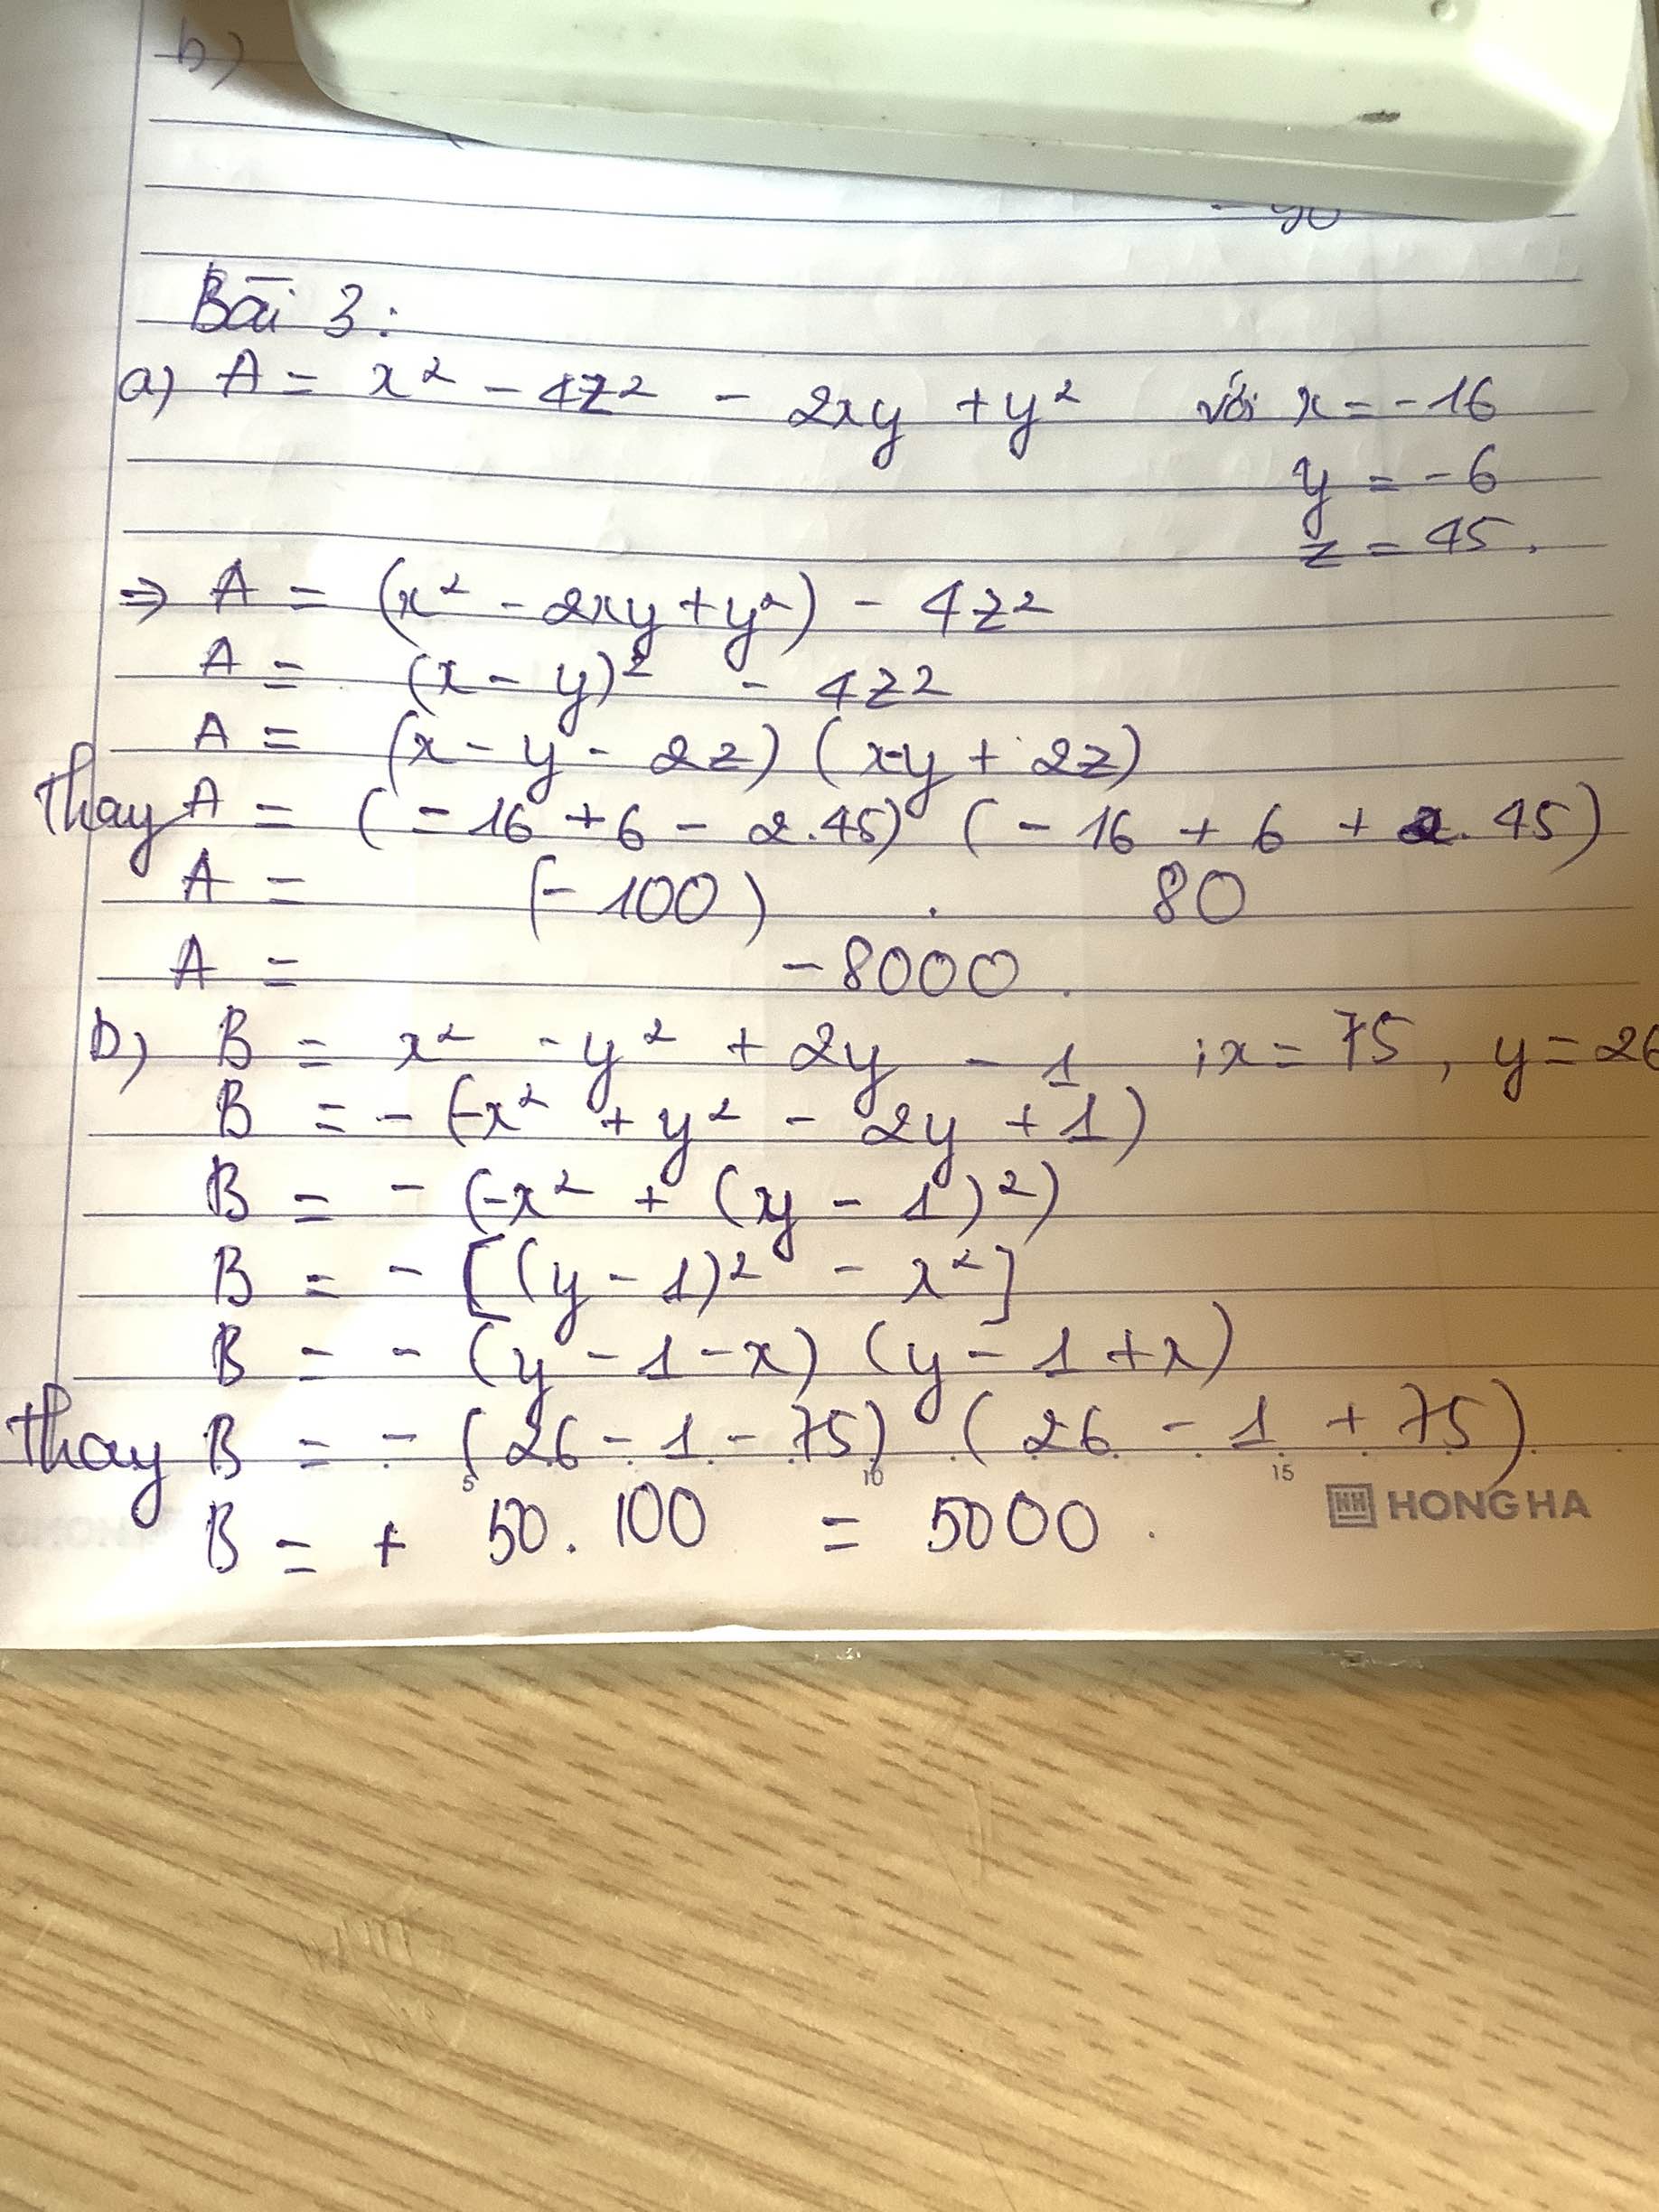 b)
Bài 3:
a) A = x² - 4z² - 2xy + y² với x = -16
y = -6
z = 45.
⇒ A = (x² - 2xy + y²) - 4z²
A = (x - y)² - 4z²
A = (x - y - 2z) (x-y + 2z)
Thay A = (-16 + 6 - 2.45) (-16 + 6 + 2.45)
A = (-100) . 80
A = -8000.
b) B = x² - y² + 2y - 1 ; x = 75, y = 26
B = - (-x² + y² - 2y + 1)
B = - (-x² + (y - 1)²)
B = - [(y - 1)² - x²]
B = - (y - 1 - x) (y - 1 + x)
Thay B = - (26 - 1 - 75) (26 - 1 + 75)
5 10 15
HH HONG HA
B = + 50. 100 = 5000.